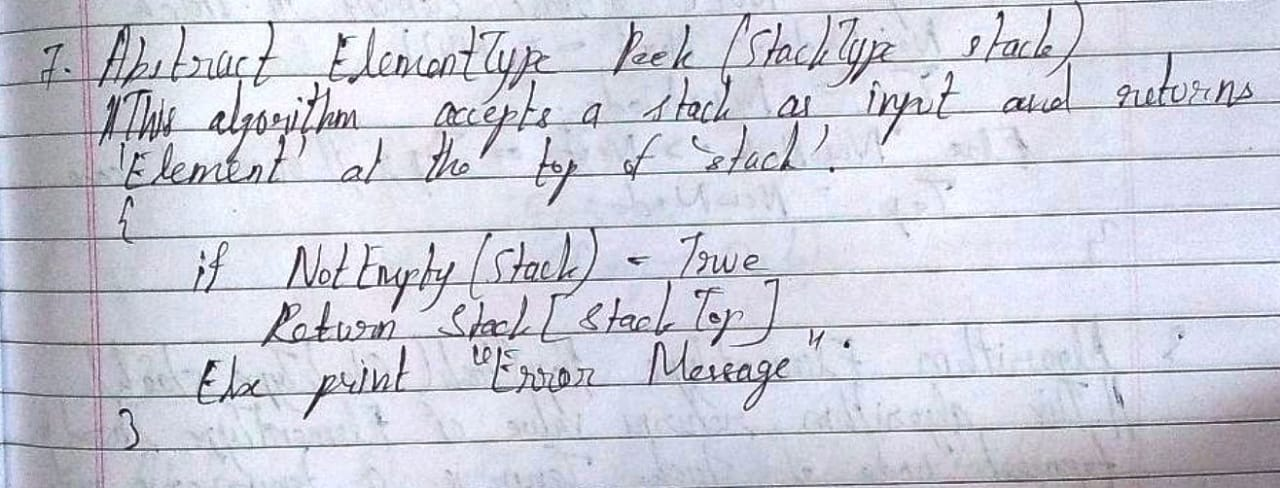 7. Abstract ElementType Peek (StackType stack)
//This algorithm accepts a stack as input and returns
'Element' at the top of 'stack'.
{
if NotEmpty (Stack) = True
Return Stack [StackTop]
Else print "Error Message".
}